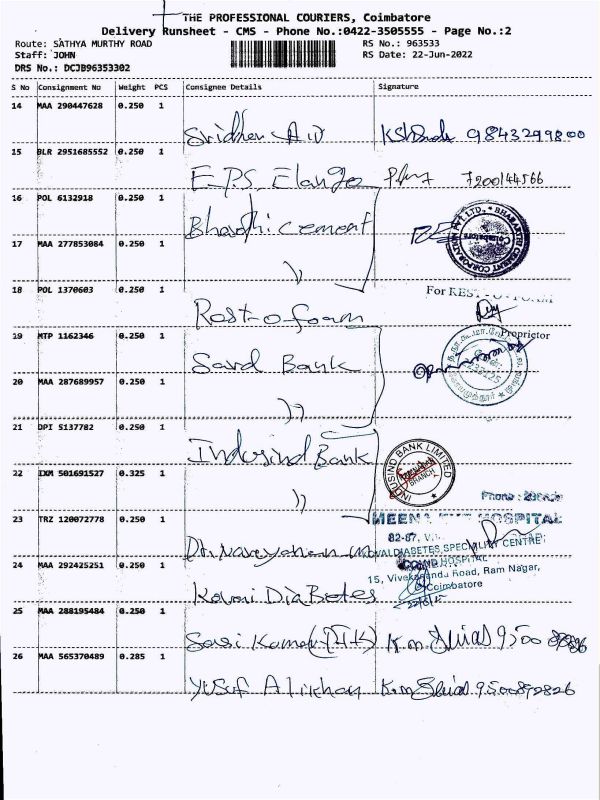 THE PROFESSIONAL COURIERS, Coimbatore
Delivery Runsheet - CMS - Phone No.:0422-3505555 - Page No.:2
Route: SATHYA MURTHY ROAD RS No.: 963533
Staff: JOHN RS Date: 22-Jun-2022
DRS No.: DCJB96353302
S No Consignment No Weight PCS Consignee Details Signature
14 MAA 290447628 0.250 1
Sridhar 9843299800
15 BLR 2951685552 0.250 1
E.P.S. Elango 7200144566
16 POL 6132918 0.250 1
Bharathi cement
BHARATHI CEMENT CORPORATION PVT. LTD.
Coimbatore
17 MAA 277853084 0.250 1
18 POL 1370603 0.250 1
Rest-o foam
For REST - O - FOAM
Proprietor
19 MTP 1162346 0.250 1
Sard Bank
20 MAA 287689957 0.250 1
21 DPI 5137782 0.250 1
Indusind Bank
INDUSIND BANK LIMITED
BRANCH
22 IXM 501691527 0.325 1
Phone :
23 TRZ 120072778 0.250 1
MEENA EYE HOSPITAL
82-87,
DIABETES SPECIALITY CENTRE
24 MAA 292425251 0.250 1
HOSPITAL
15, Vivekananda Road, Ram Nagar,
Coimbatore
Kovai DiaBetes
25 MAA 288195484 0.250 1
Sasi Kumar
26 MAA 565370489 0.285 1
Yusuf Alikhan 9500892826